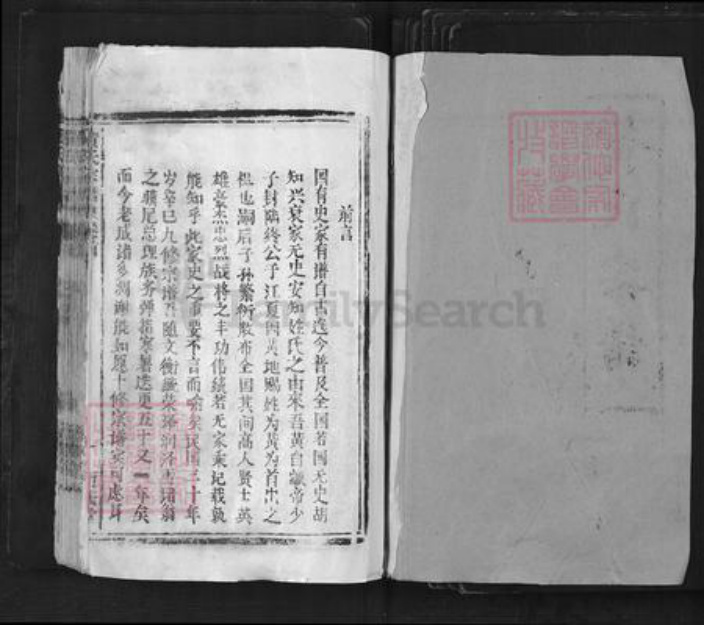 前言
国有史家有谱自古迄今普及全国若国无史胡
知兴衰家无史安知姓氏之由来吾黄自轩帝少
子封临终公于江夏因黄地赐姓为黄为首出之
祖也嗣后子孙繁衍散布全国其间高人贤士英
雄豪杰忠烈战将之丰功伟绩若无家乘记载孰
能知乎此家史之重要不言而喻矣民国三十年
岁辛巳九修宗谱 随文衡 荣 润泽 诸翁
之骥尾总理族务弹指寒暑迭更五十又一年矣
而今老成诸多凋谢 如愿十修宗谱
FamilySearch